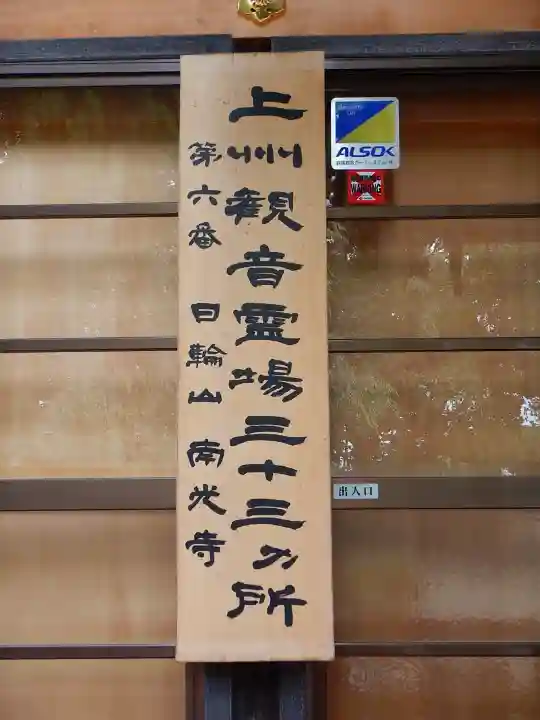 上州観音霊場三十三カ所
第六番 日輪山 南光寺
ALSOK
出入口